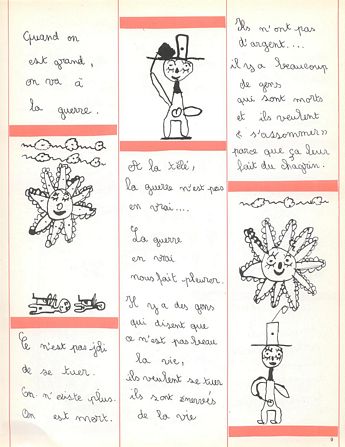 Quand on
est grand,
on va à
la guerre.
Ce n'est pas joli
de se tuer.
On n'existe plus.
On est mort.
A la télé,
la guerre n'est pas
en vrai....
La guerre
en vrai
nous fait pleurer.
Il y a des gens
qui disent que
ce n'est pas beau
la vie,
ils veulent se tuer
ils sont énervés
de la vie
Ils n'ont pas
d'argent....
il y a beaucoup
de gens
qui sont morts
et ils veulent
« s'assommer »
parce que ça leur
fait du chagrin.
9